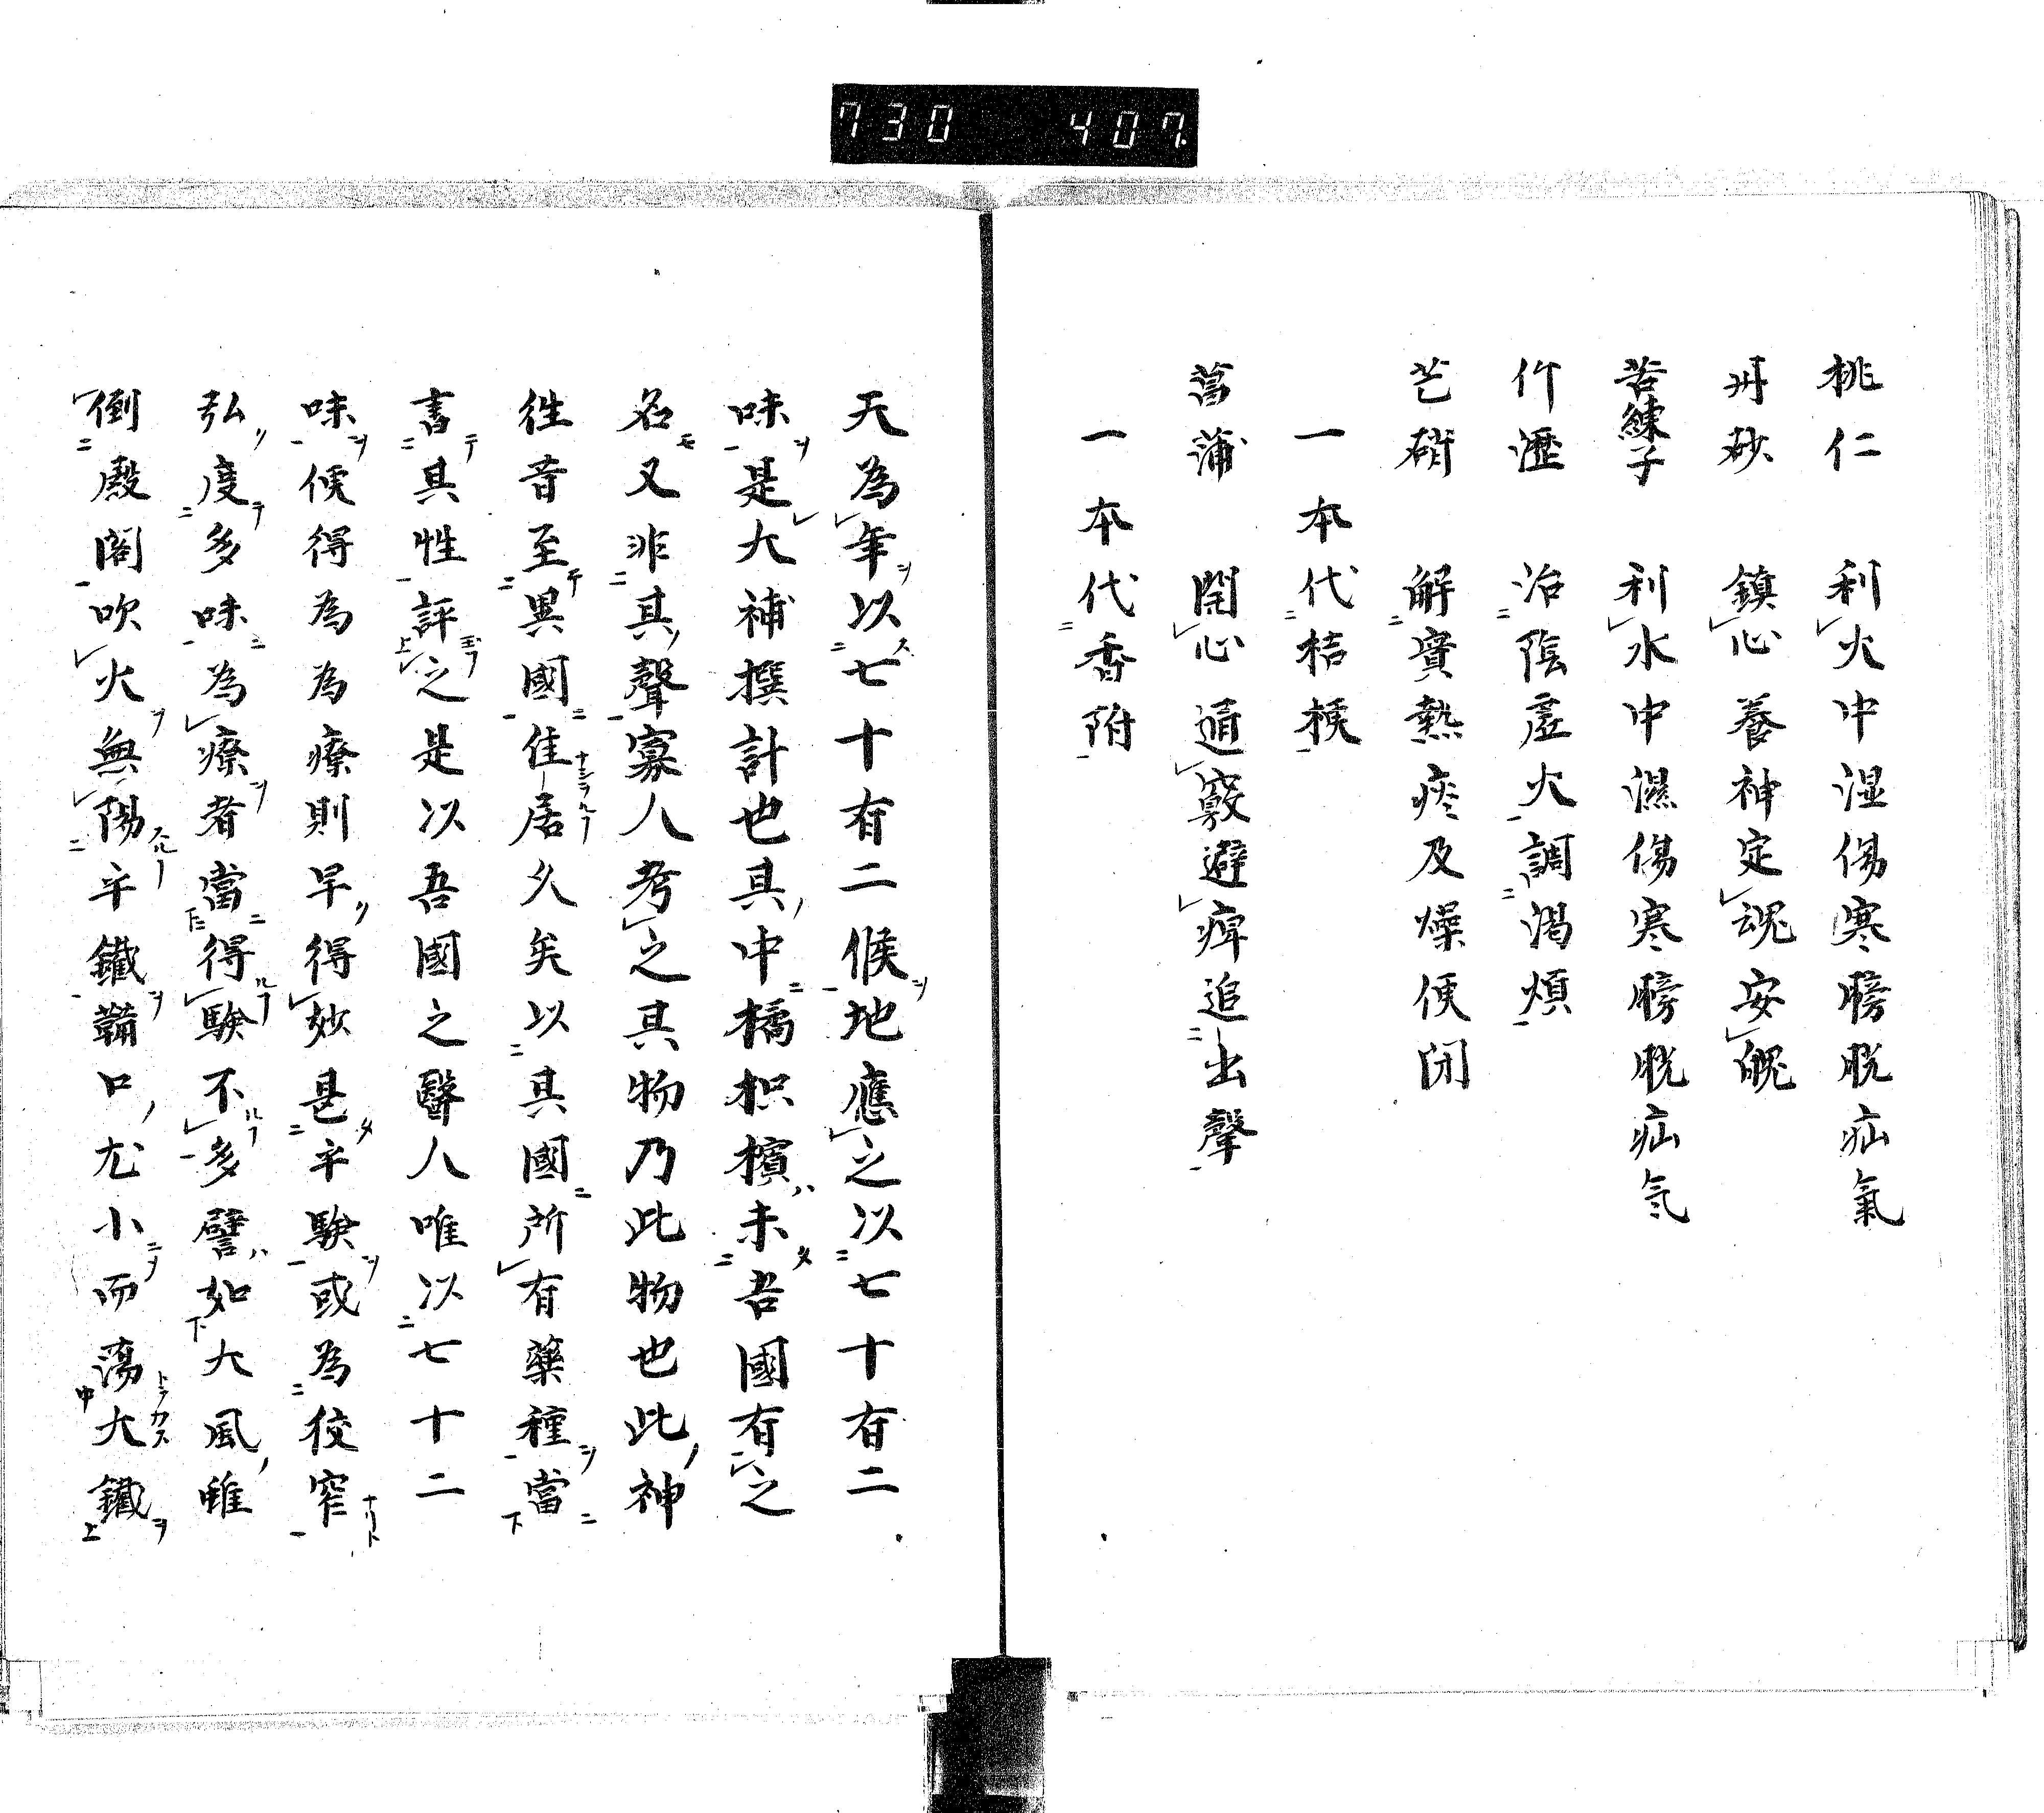 730 407.
桃仁 利火中湿傷寒膀胱疝氣
丹砂 鎮心養神定魂安魄
苦練子 利水中濕傷寒膀胱疝気
竹瀝 治陰虚火調渇煩
芒硝 解實熱痰及燥便閉
一本代桔梗
菖蒲 開心通竅避痺追出聲
一本代香附
天為年以七十有二候地應之以七十有二
味是大補撰計也其中橘枳檳未吾國有之
名又非其聲寡人考之其物乃此物也此神
徃昔至異國住居久矣以其國所有藥種當
書其性評之是以吾國之醫人唯以七十二
味便得為為療則早得妙甚辛驗或為狡窄
弘度多味為療者當得驗不多譬如大風唯
倒殿閣吹火無陽辛鐵鞴口尤小而蕩大鐵